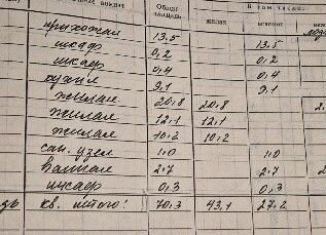 Общая площадь
В том числе:
прихожая 13,5 13,5
шкаф 0,2 0,2
шкаф 0,4 0,4
кухня 9,1 9,1
жилая 20,8 20,8
жилая 12,1 12,1
жилая 10,2 10,2
сан. узел 1,0 1,0
ванная 2,7 2,7
шкаф 0,3 0,3
кв. итого: 70,3 43,1 27,2